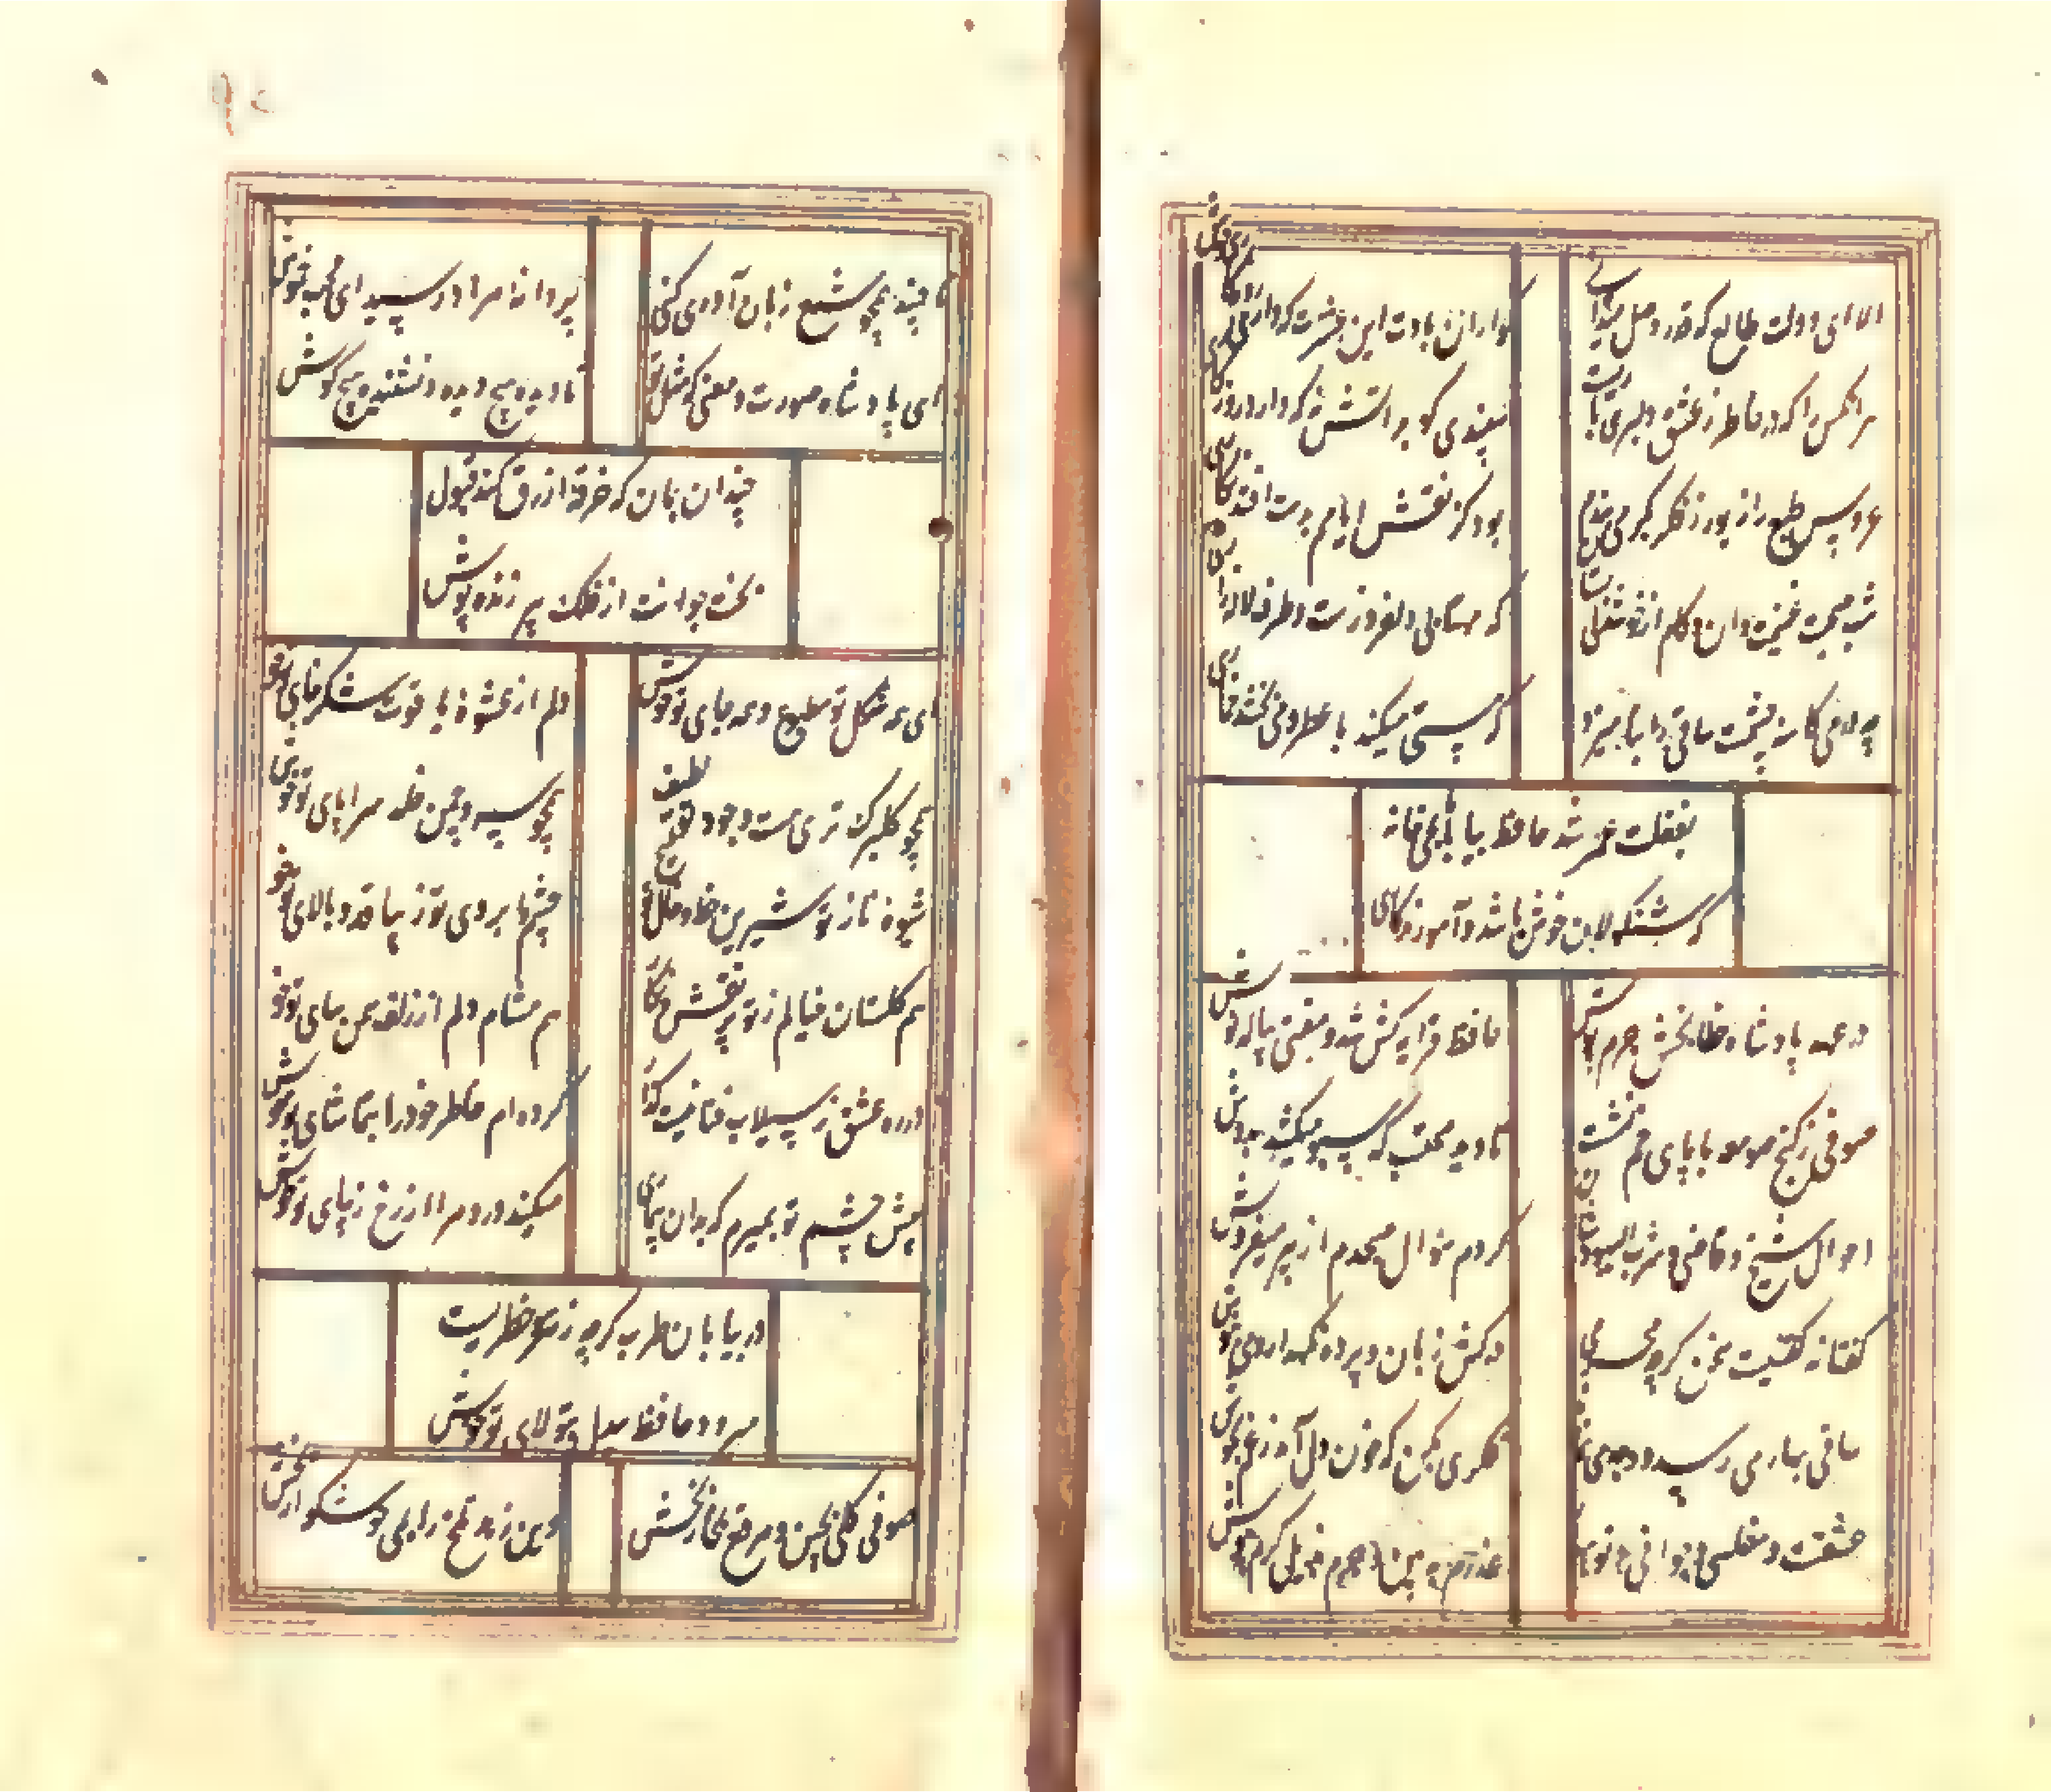 الا ای دولت طالع که قدر وصل میدانی
گوارا بادت این عشرت که داری روزگاری خوش
هر انکس را که در خاطر ز عشق دلبری باریست
سپندی گو بر اتش نه که دارد روزگاری خوش
عروس طبع را زیور ز فکر بکر می بندم
بود کز نقش ایام بدست افتد نگاری خوش
شب صحبت غنیمت دان و کام از خوشدلی بستان
که مهتابی دلفروزست و طرف لاله زاری خوش
که مستی میکند با عقل و می بخشد خماری خوش
بغفلت عمر شد حافظ بیا با ما بمیخانه
که شنگولان خوش باشت بیاموزند کاری خوش
در عهد پادشاه خطابخش جرم پوش
حافظ قرابه کش شد و مفتی پیاله نوش
صوفی ز کنج صومعه با پای خم نشست
تا دید محتسب که سبو میکشد بدوش
احوال شیخ و قاضی و شرب الیهودشان
کردم سؤال صبحدم از پیر میفروش
گفتا نه گفتنیست سخن گرچه محرمی
درکش زبان و پرده نگهدار و می بنوش
ساقی بهار می رسد و وجه می نماند
فکری بکن که خون دل آمد ز غم بجوش
عشقست و مفلسی و جوانی و نوبهار
عذرم پذیر و جرم بذیل کرم بپوش
تا چند همچو شمع زبان آوری کنی
پروانه مراد رسید ای محب خموش
ای پادشاه صورت و معنی که مثل تو
نادیده هیچ دیده و نشنیده هیچ گوش
چندان بمان که خرقه ازرق کند قبول
بخت جوانت از فلک پیر ژنده پوش
ای همه شکل تو مطبوع و همه جای تو خوش
دلم از عشوه یاقوت شکرخای تو خوش
همچو گلبرگ تری هست وجود تو لطیف
همچو سرو چمن خلد سراپای تو خوش
شیوه ناز تو شیرین خط و خال تو ملیح
چشم و ابروی تو زیبا قد و بالای تو خوش
هم گلستان خیالم ز تو پر نقش و نگار
هم مشام دلم از زلف سمن سای تو خوش
در ره عشق ز سیلاب فنا نیست گذار
کرده ام خاطر خود را بتماشای تو خوش
پیش چشم تو بمیرم که بدان بیماری
میکند درد مرا از رخ زیبای تو خوش
در بیابان طلب گرچه ز هر سو خطریست
میرود حافظ بیدل بتولای تو خوش
صوفی گلی بچین و مرقع بخار بخش
وین زهد تلخ را بمی خوشگوار بخش